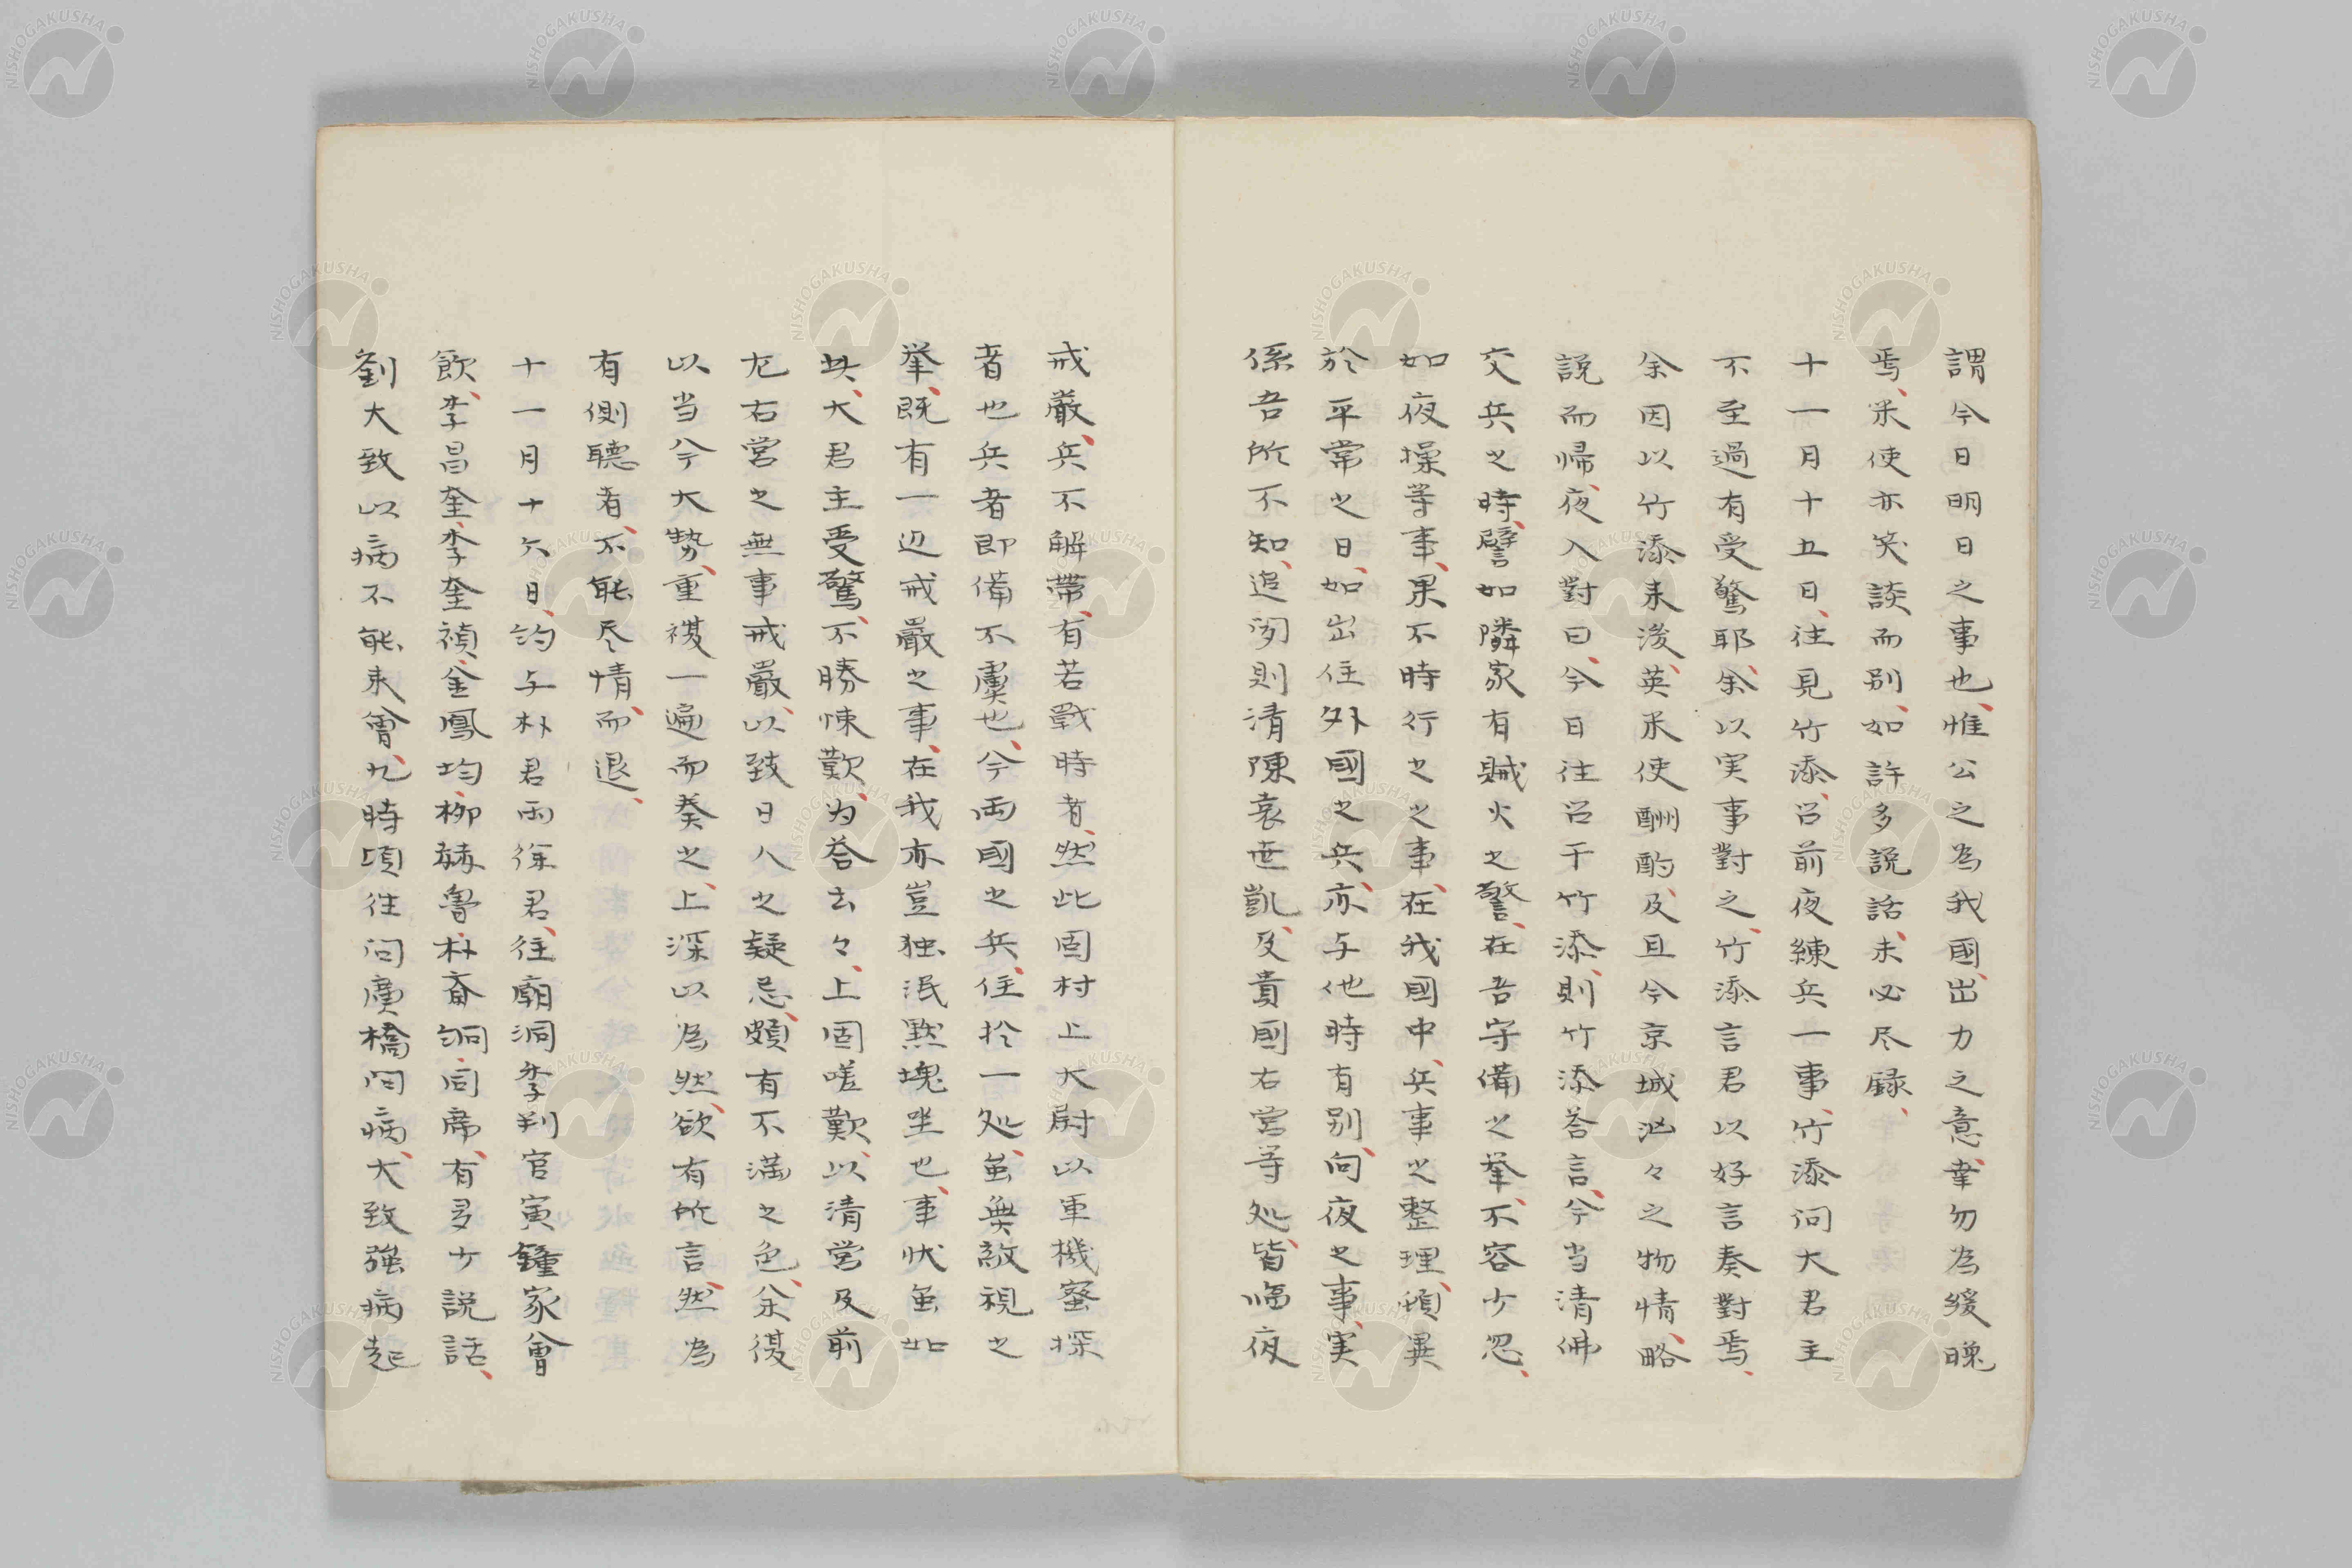 謂今日明日之事也、惟公之為我國、出力之意、幸勿為緩晩
焉、米使亦笑談而别、如許多説話、未必尽録、
十一月十五日、往見竹添、呂前夜練兵一事、竹添问大君主
不至過有受驚耶、余以実事對之、竹添言君以好言奏對焉、
余因以竹添来後、英米使酬酌、及且今京城汹々之物情、略
説而帰、夜入對曰、今日往呂干竹添、則竹添荅言、今当清佛
交兵之時、譬如隣家有賊火之警、在吾守備之挙、不容少忽、
如夜操等事、果不時行之之事、在我國中、兵事之整理、頓異
於平常之日、如出住外國之兵、亦与他時有别、向夜之事、実
係吾所不知、追闻則清陳袁世凱、及貴国右営等処、皆临夜
戒嚴、兵不解帶、有若戰時者、然此固村上大尉以軍機蜜探
者也兵者即備不虞也、今両國之兵、住於一処、虽無敵視之
挙、既有一辺戒嚴之事、在我亦豈独泯黙塊坐也、事状虽如
此、大君主受驚、不勝悚歎、为荅云々、上固嗟歎、以清営及前
尤右営之無事戒嚴、以致日人之疑忌、頗有不満之色、余復
以当今大勢、重複一遍而奏之、上深以為然、欲有所言、然為
有側聽者、不能尽情而退、
十一月十六日、訪与朴君両徐君、往廟洞李判官寅鍾家會
飲、李昌奎李奎禎金鳳均、柳赫魯朴斎絅同席、有多少説話、
劉大致以病不能来會、九時頃往问廣橋问病、大致強病起